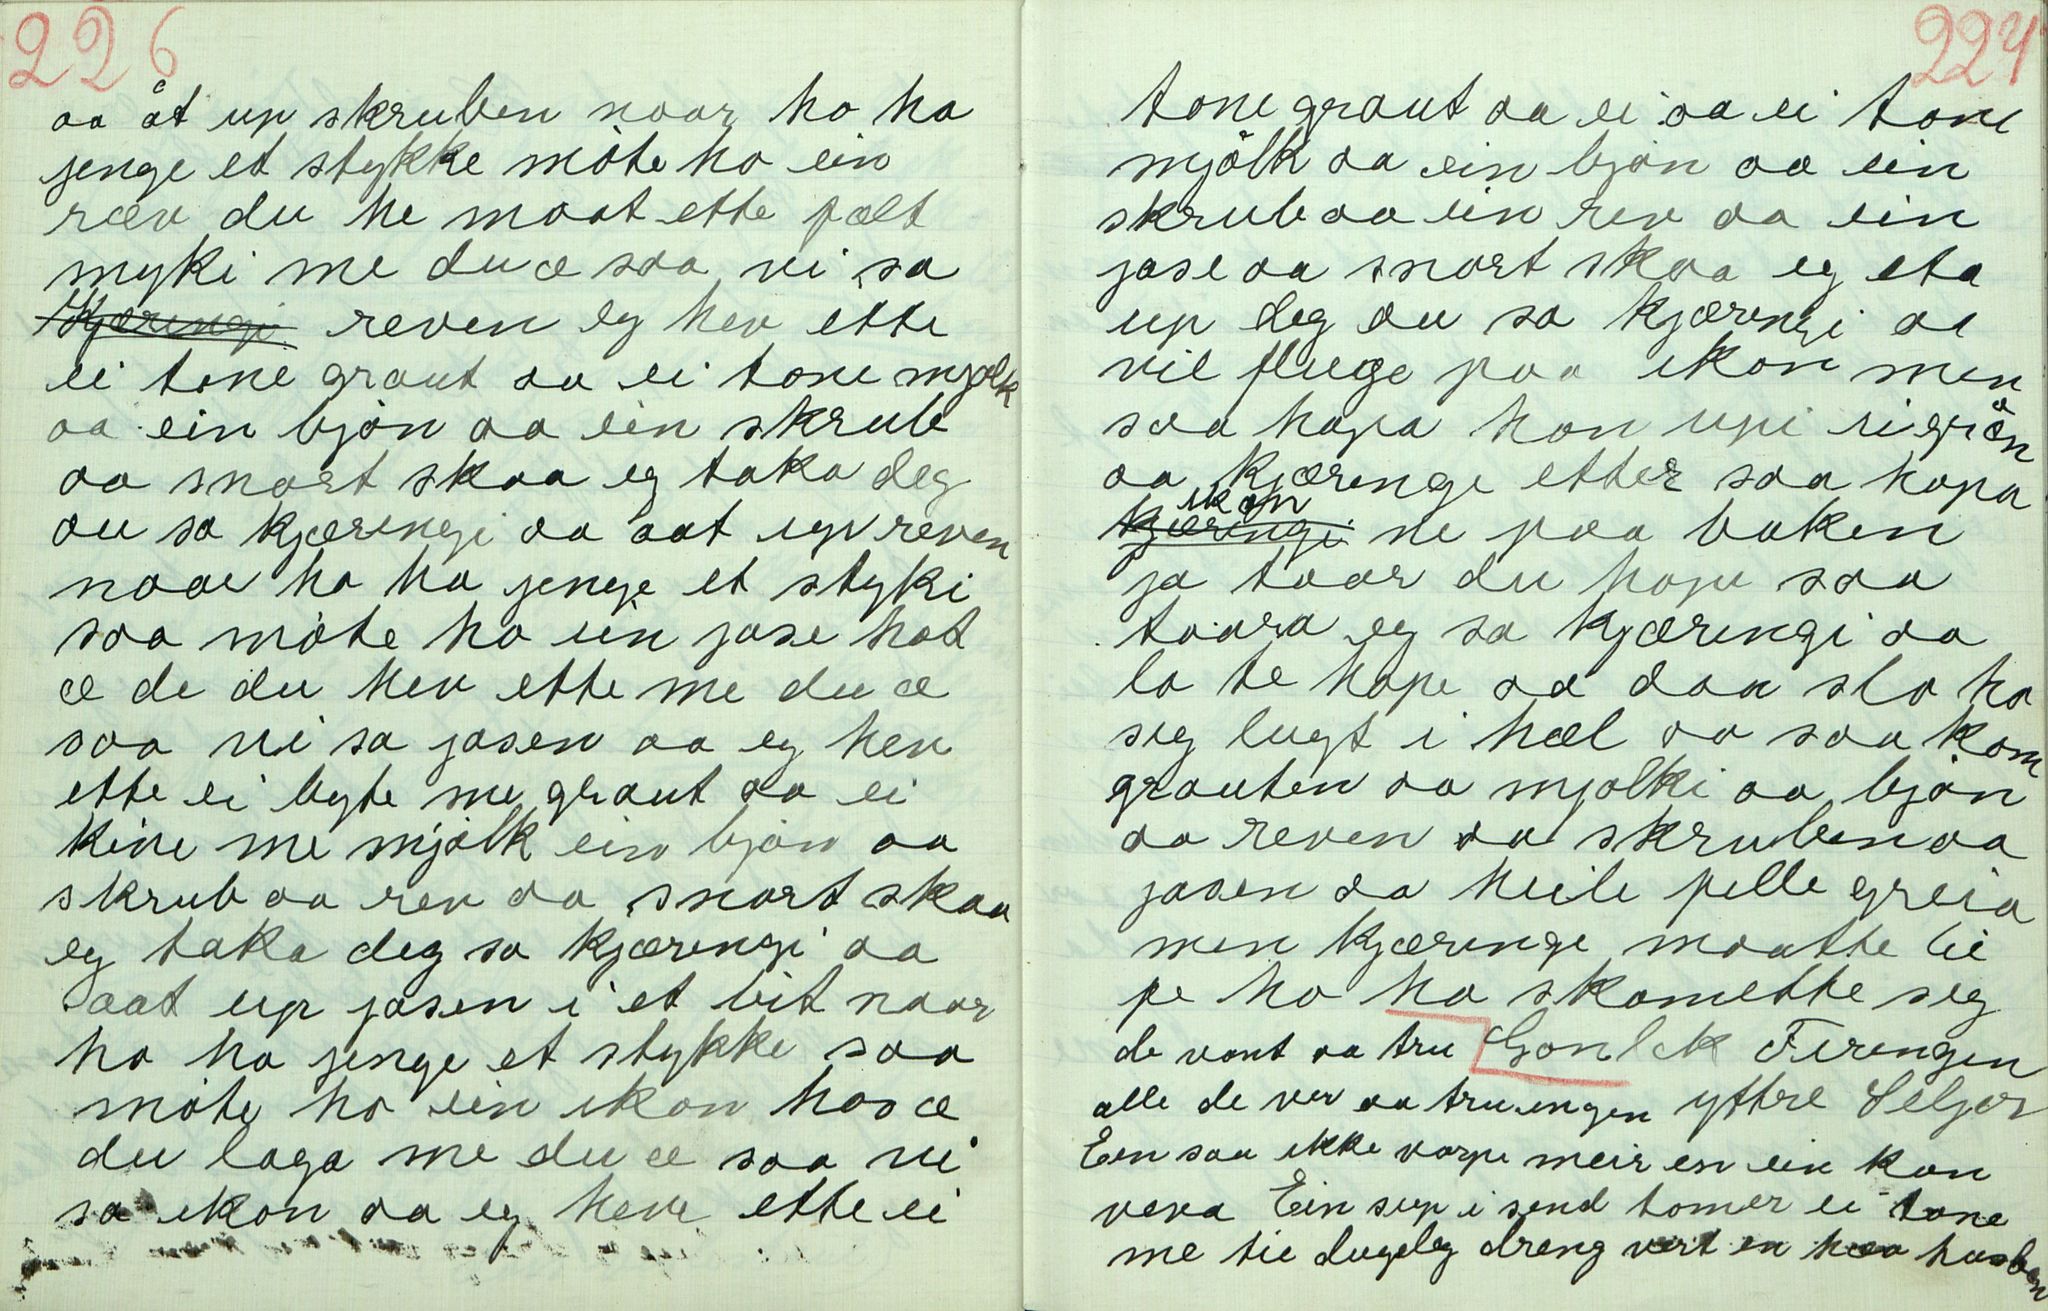 226
aa åt up skruben naar ho ha
jenge et stykke møte ho ein
ræv du he maat ette fælt
myki me du æ saa vi sa
kjæringi reven eg hev ette
ei tone graut aa ei tone mjølk
aa ein bjøn aa ein skrub
aa snart skaa eg taka deg
du sa kjæringi aa aat up reven
naar ho ha jenge et styki
saa møte ho ein jase hat
æ de du hev ette me du æ
saa vi sa jasen aa eg hev
ette ei byte me graut aa ei
kine me mjølk ein bjøn aa
skrub aa rev aa snart skaa
eg taka deg sa kjæringi aa
aat up jasen i et bit naar
ho ha jenge et stykke saa
møte ho ein ikon haa æ
du laga me du æ saa vi
sa ikon aa eg heve ette ei
227
tone graut aa ei aa ei tone
mjølk aa ein bjøn aa ein
skrub aa ein rev aa ein
jase aa snart skaa eg eta
up deg du sa kjæringi aa
vil fluge paa ikon men
saa hopa hon upi ei grån
aa kjæringe etter saa hopa
kjæringi ikon ne paa baken
ja taar du hope saa
taara eg sa kjæringi aa
la te hope aa daa slo ho
seg lugt i hæl aa saa kom
grauten aa mjølki aa bjøn
aa reven aa skruben aa
jasen aa heile pelle greia
men kjæringe maatte lie
pe ho ha skamette seg
de vont aa tru Gonlek Førengen
alle de ver aa tru ingen yttre Seljor
Een saa ikke varpe meir en ein kan
vera Ein sup i send tømer ei tone
me tie dugeleg dreng vert en haa husbon